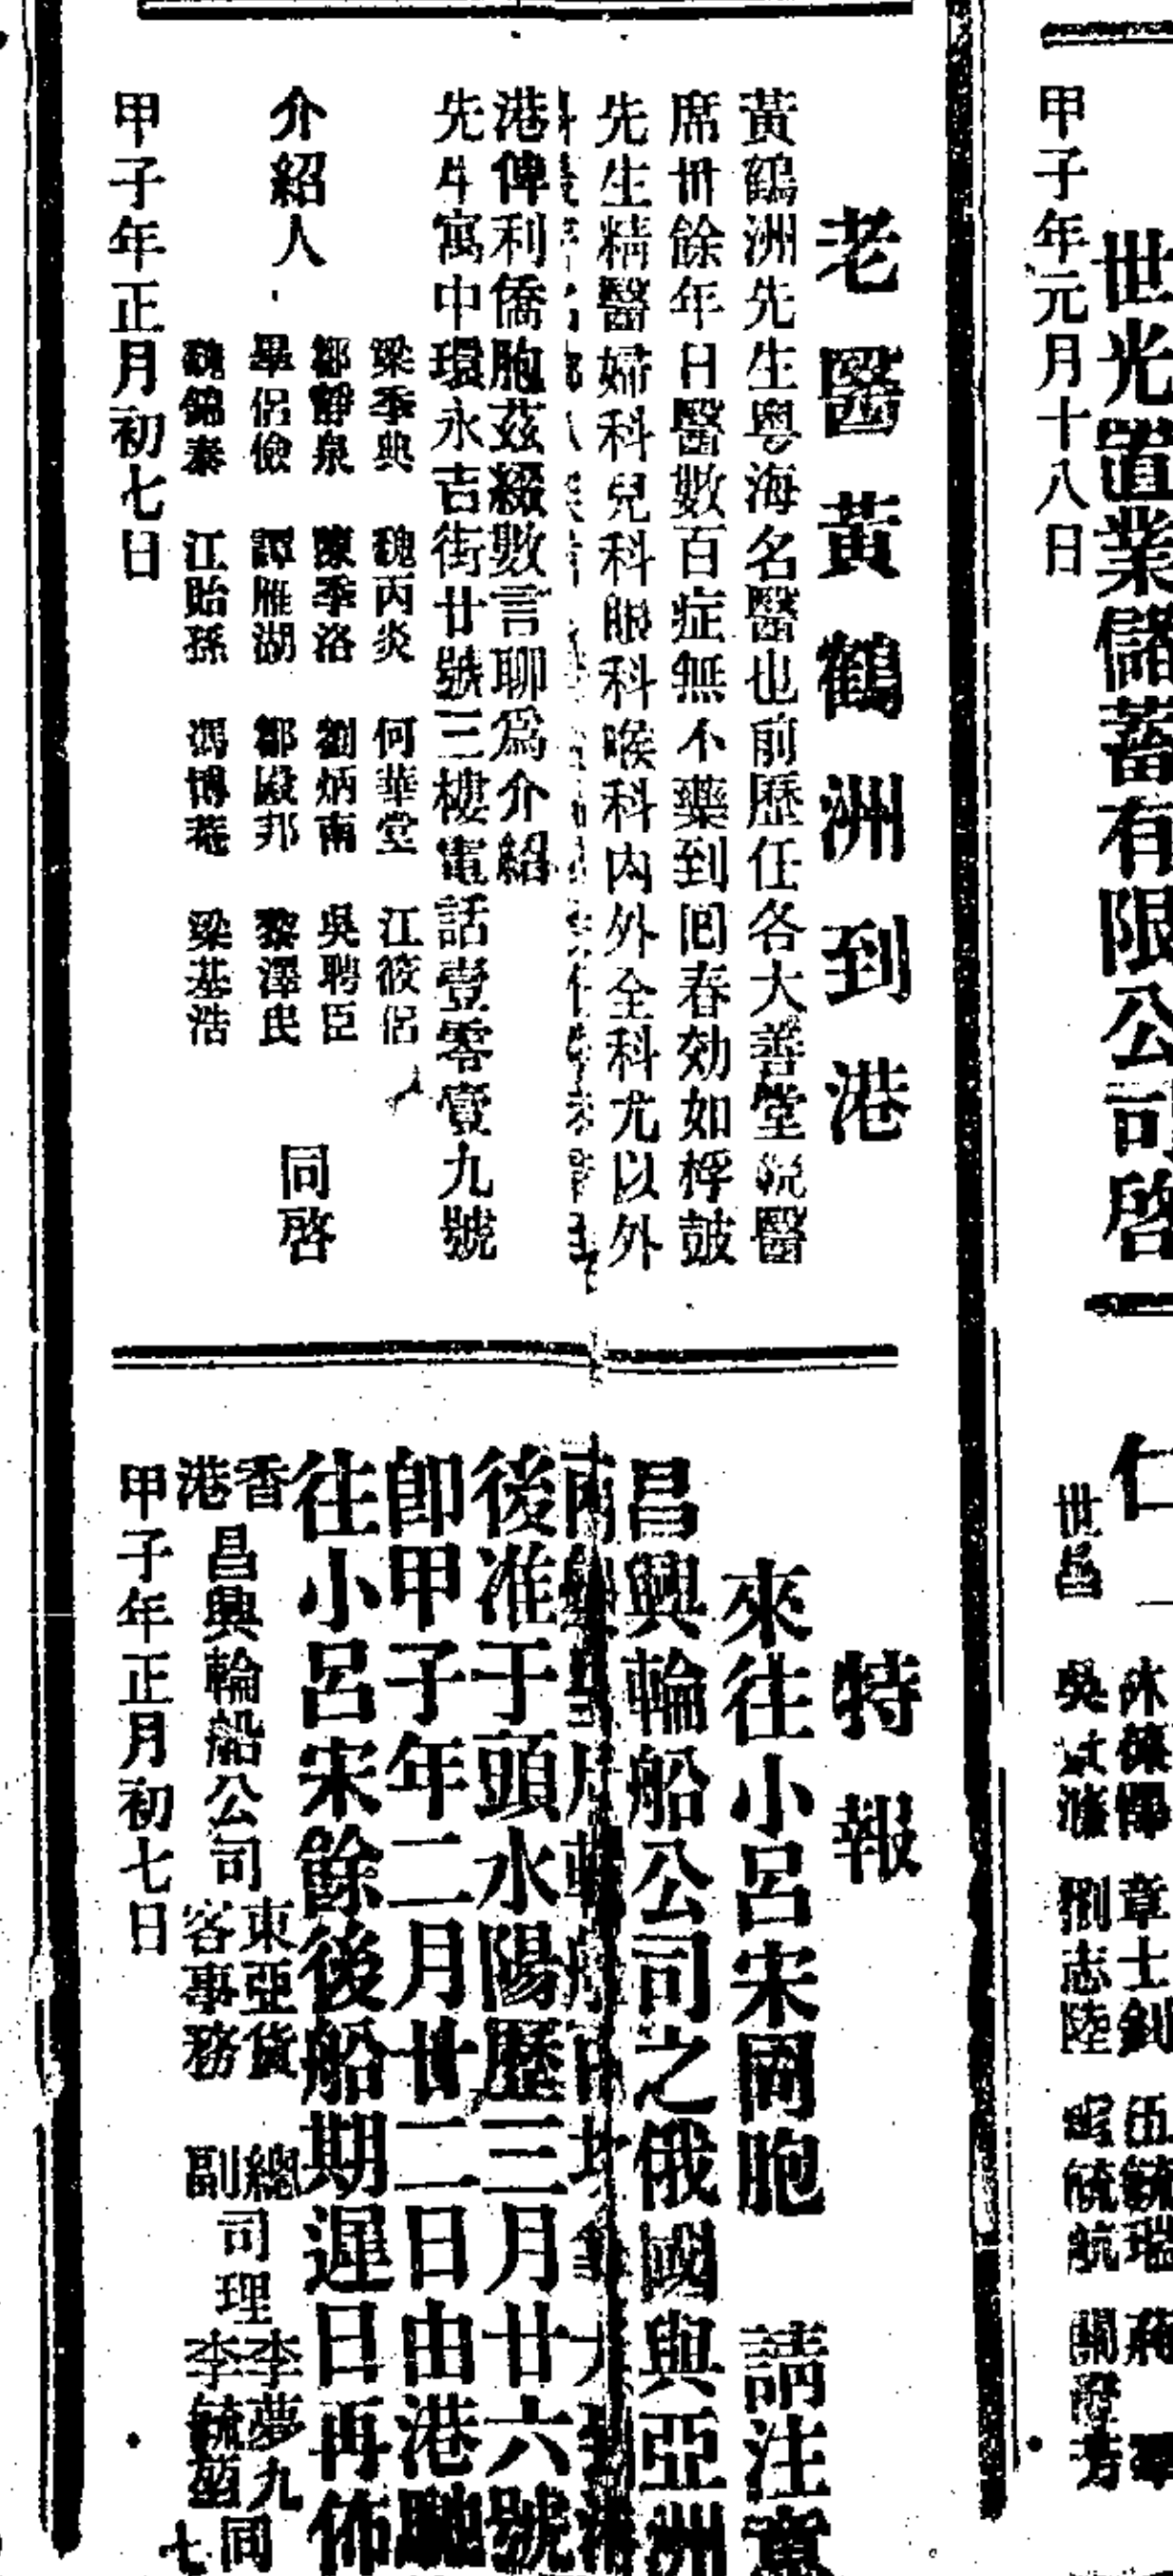 世光置業儲蓄有限公司啓
甲子年元月十八日
老醫黃鶴洲到港
黃鶴洲先生粵海名醫也前歷任各大善堂院醫
席卅餘年日醫數百症無不藥到回春効如桴鼓
先生精醫婦科兒科眼科喉科內外全科尤以外
港俾利僑胞茲綴數言聊爲介紹
先生寓中環永吉街廿號三樓電話壹零壹九號
介紹人
梁季典 魏丙炎 何華堂 江筱侶
鄒靜泉 陳季洛 劉炳南 吳聘臣
畢侶儉 譚雁湖 鄒殿邦 黎澤民
魏錦泰 江貽孫 馮博菴 梁基浩
同啓
甲子年正月初七日
仁
世昌
章士釗 伍毓瑞
劉志陸
特報
來往小呂宋同胞 請注意
昌興輪船公司之俄國與亞洲
後准于頭水陽歷三月廿六號
即甲子年二月廿二日由港馳
往小呂宋餘後船期遲日再佈
香港昌興輪船公司
東亞貨
客事務
總副司理
李夢九
李毓
同
甲子年正月初七日
七